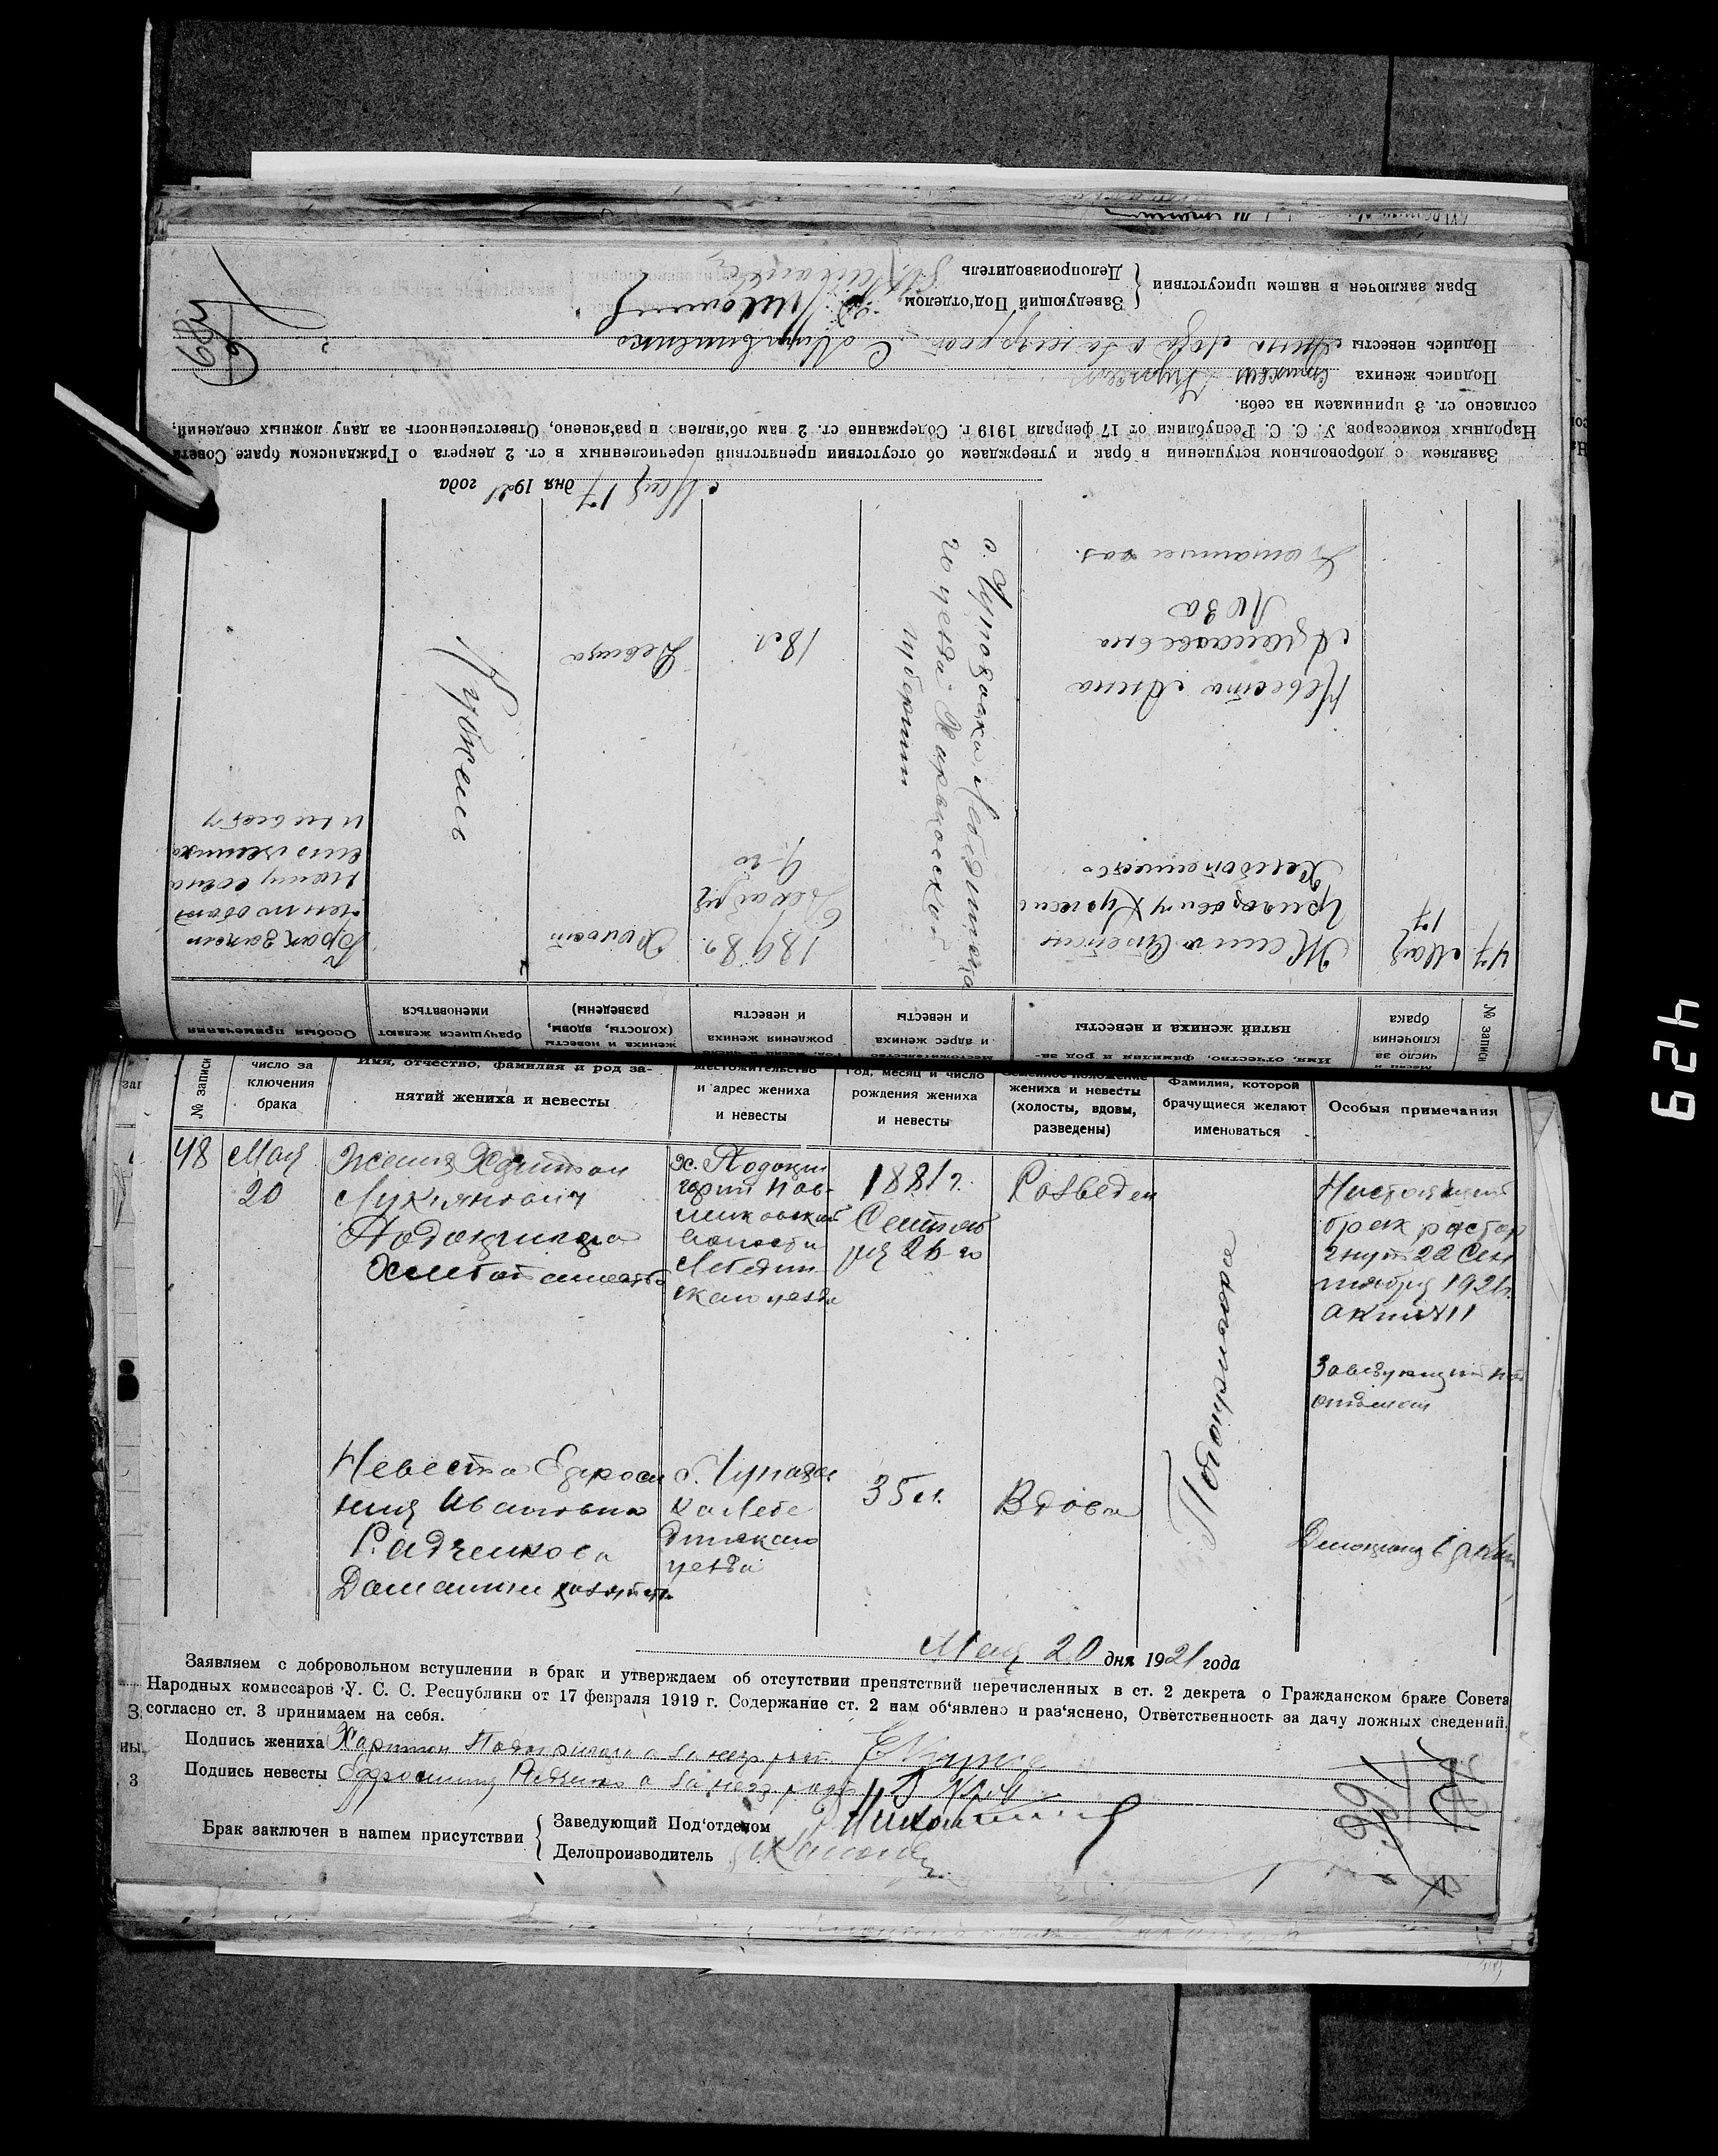 № записи
Месяц и число за ключения брака
Имя, отчество, фамилия и род за-
нятий жениха и невесты
Местожительство и адрес жениха и невесты
Год, месяц и число рождения жениха и невесты
жениха и невесты (холосты, вдовы, разведены)
брачущиеся желают именоваться
Особыя примечания
47
Мая
17
Жених Стефан
Григорович Кужель
Хлебопашество
Невеста Анна
Лоза
Домашнее хоз.
с. Чупаховка Лебединска
го уезда Харьковской
губернии
1898 г.
Декабря
9-го
18 л.
Холост
Девица
Кужель
Брак заклю
чен по обоюд
ному согла
Мая 17 дня 1921 года
Заявляем с добровольном вступлении в брак и утверждаем об отсутствии препятствий перечисленных в ст. 2 декрета о Гражданском браке Совета
Народных комиссаров У. С. С. Республики от 17 февраля 1919 г. Содержание ст. 2 нам об'явлено и раз'яснено, Ответственность за дачу ложных сведений,
согласно ст. 3 принимаем на себя.
Подпись жениха Стефан Кужель
Подпись невесты Анна Лоза а за негр расп. С. Литвиненко
Брак заключен в нашем присутствии
Заведующий Под'отделом
Делопроизводитель
№ записи
число за ключения брака
Имя, отчество, фамилия и род за-
нятий жениха и невесты
местожительство и адрес жениха и невесты
Год, месяц и число рождения жениха и невесты
Семейное положение жениха и невесты (холосты, вдовы, разведены)
Фамилия, которой брачущиеся желают именоваться
Особыя примечания
48
Мая
20
Жених Харитон
Лукьянович
Подопригора
Хлебопашество
х. Подопри
гории Пав-
ленковской
волости
Лебедин
скаго уезда
1881 г.
Сентяб
ря 26-го
Разведен
Подопригора
Настоящий
брак растор
гнут 22 Сен
тября 1921 г.
акт № 11
Заведующий под
отделом
Невеста Ефроси
ния Ивановна
Радченкова
Домашнее хозяйство
с. Чупахов
ка Лебе
динскаго
уезда
35 л.
Вдова
Мая 20 дня 1921 года
Заявляем с добровольном вступлении в брак и утверждаем об отсутствии препятствий перечисленных в ст. 2 декрета о Гражданском браке Совета
Народных комиссаров У. С. С. Республики от 17 февраля 1919 г. Содержание ст. 2 нам об'явлено и раз'яснено, Ответственность за дачу ложных сведений,
согласно ст. 3 принимаем на себя.
Подпись жениха Харитон Подопригора а за негр расп.
Подпись невесты Ефросиния Радченко а за негр расп.
Брак заключен в нашем присутствии
Заведующий Под'отделом
Делопроизводитель
429